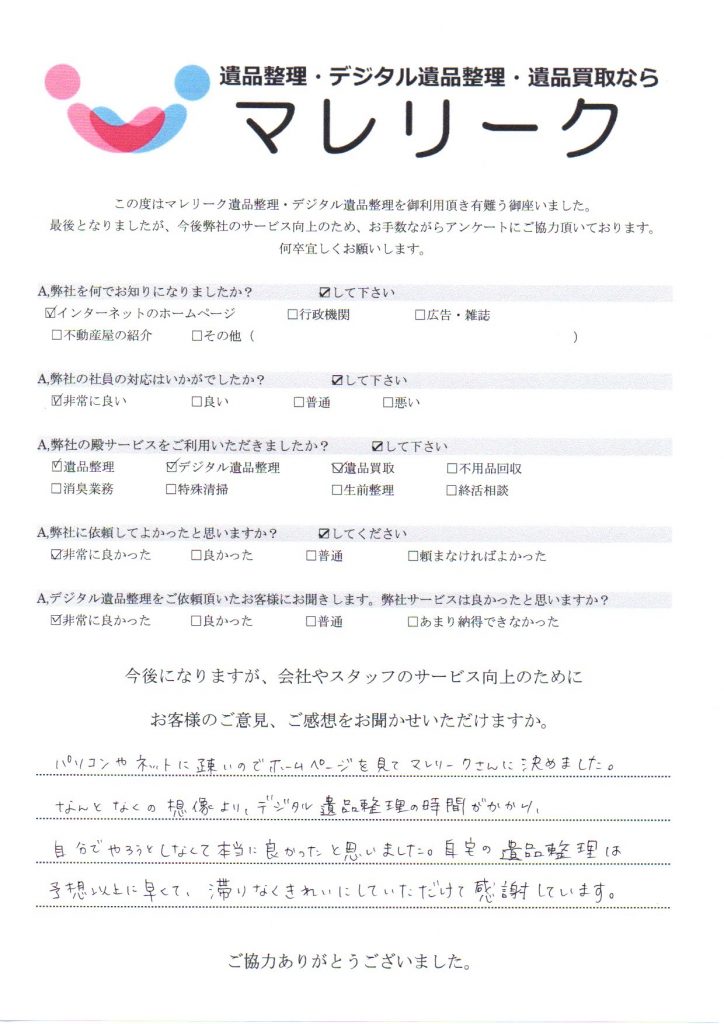 遺品整理・デジタル遺品整理・遺品買取なら
マレリーク
この度はマレリーク遺品整理・デジタル遺品整理を御利用頂き有難う御座いました。
最後となりましたが、今後弊社のサービス向上のため、お手数ながらアンケートにご協力頂いております。
何卒宜しくお願いします。
A,弊社を何でお知りになりましたか？ ☑して下さい
☑インターネットのホームページ □行政機関 □広告・雑誌
□不動産屋の紹介 □その他（ ）
A,弊社の社員の対応はいかがでしたか？ ☑して下さい
☑非常に良い □良い □普通 □悪い
A,弊社の殿サービスをご利用いただきましたか？ ☑して下さい
☑遺品整理 ☑デジタル遺品整理 ☑遺品買取 □不用品回収
□消臭業務 □特殊清掃 □生前整理 □終活相談
A,弊社に依頼してよかったと思いますか？ ☑してください
☑非常に良かった □良かった □普通 □頼まなければよかった
A,デジタル遺品整理をご依頼頂いたお客様にお聞きします。弊社サービスは良かったと思いますか？
☑非常に良かった □良かった □普通 □あまり納得できなかった
今後になりますが、会社やスタッフのサービス向上のために
お客様のご意見、ご感想をお聞かせいただけますか。
パソコンやネットに疎いのでホームページを見てマレリークさんに決めました。
なんとなくの想像より、デジタル遺品整理の時間がかかり、
自分でやろうとしなくて本当に良かったと思いました。自宅の遺品整理は
予想以上に早くて、滞りなくきれいにしていただけて感謝しています。
ご協力ありがとうございました。